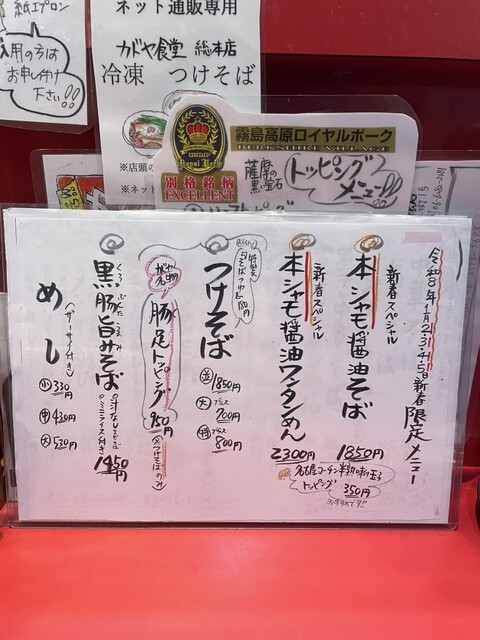 紙エプロン
用の方は
お申し付け
下さい!!
ネット通販専用
カドヤ食堂 総本店
冷凍 つけそば
※店頭の
※ネット
霧島高原ロイヤルポーク
BERKSHIRE VILLAGE
Royal Pork
別格銘柄
EXCELLENT
薩摩の
黒宝石
トッピング
メニュー!!
令和8年1月2・3・4・5日新春限定メニュー
新春スペシャル
本シャモ醤油そば
1850円
名古屋コーチン半熟味玉子
トッピング 350円
新春スペシャル
本シャモ醤油ワンタンめん
2300円
つけそば
並 1850円
大 プラス 200円
特 プラス 800円
豚足トッピング
950円
(つけそばのみ)
黒豚旨みそば
くろぶた うまみ
ミニライス付き
1450円
めし
(ザーサイ付き)
小 330円
中 430円
大 530円